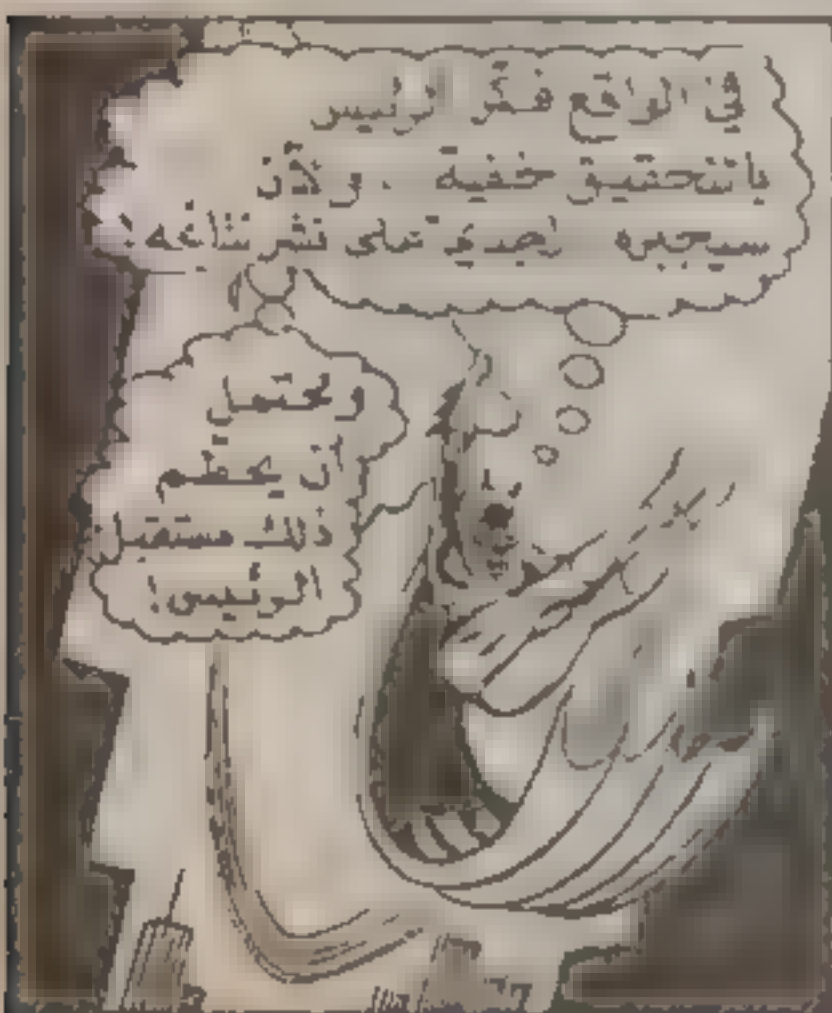 في الواقع فكّر الرئيس
بالتحقيق خفية . ولأن
سيجبره على نشر نتائجه!
ويحتمل
أن يحطّم
ذلك مستقبل
الرئيس!